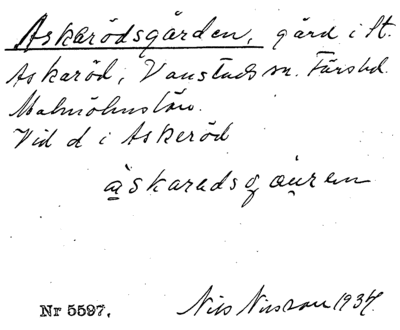 Askarödsgården, gård i St.
Askaröd, i Vanstads sn. Färs hd.
Malmöhus län.
Vid d i Askeröd
äskaradsgæuren
Nr 5597.
Nils Nilsson 1934.